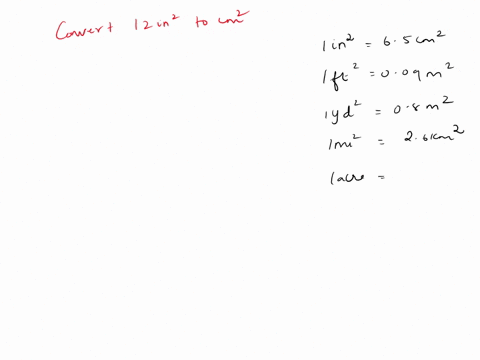 Convert 12 in² to cm²
1 in² = 6.5 cm²
1 ft² = 0.09 m²
1 yd² = 0.8 m²
1 mi² = 2.6 km²
1 acre =